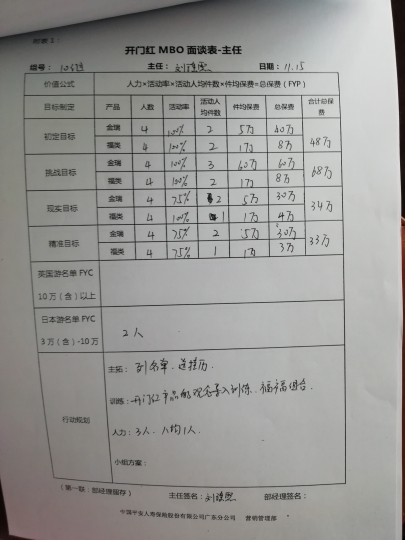 附表1：
开门红 MBO 面谈表-主任
组号： 主任： 日期：11.15
价值公式 人力×活动率×活动人均件数×件均保费=总保费（FYP）
目标制定 产品 人数 活动率 活动人均件数 件均保费 总保费 合计总保费
初定目标 金瑞 4 100% 2 5万 40万 48万
福类 4 100% 2 1万 8万
挑战目标 金瑞 4 100% 3 60万 68万
福类 4 100% 2 1万 8万
现实目标 金瑞 4 75% 2 5万 30万 34万
福类 4 100% 1 1万 4万
精准目标 金瑞 4 75% 2 5万 30万 33万
福类 4 75% 1 1万 3万
英国游名单 FYC
10 万（含）以上
日本游名单 FYC
3 万（含）-10万
2人
行动规划
主拓：列名单、送挂历.
训练：开门红产品的观念导入训练、福福组合.
人力：3人.
小组方案：
（第一联：部经理留存） 主任签名： 部经理签名：
中国平安人寿保险股份有限公司广东分公司 营销管理部